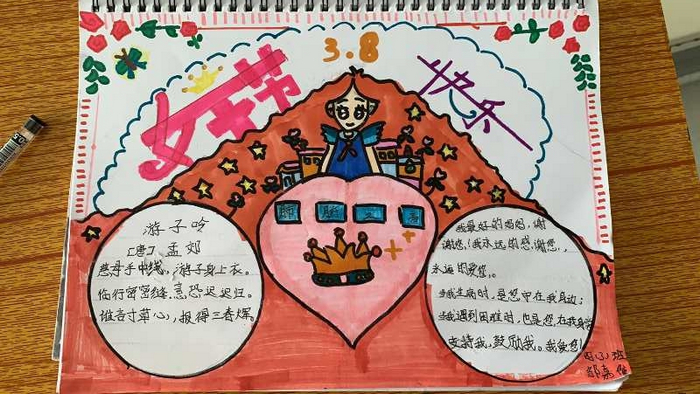 3.8
女士节
快乐
游子吟
[唐] 孟郊
慈母手中线，游子身上衣。
临行密密缝，意恐迟迟归。
谁言寸草心，报得三春辉。
我最好的妈妈，谢
谢您，(我永远的感谢您，
永远的爱您。
我生病时，是您守在我身边；
我遇到困难时，也是您在我身旁
支持我，鼓励我。我爱您！